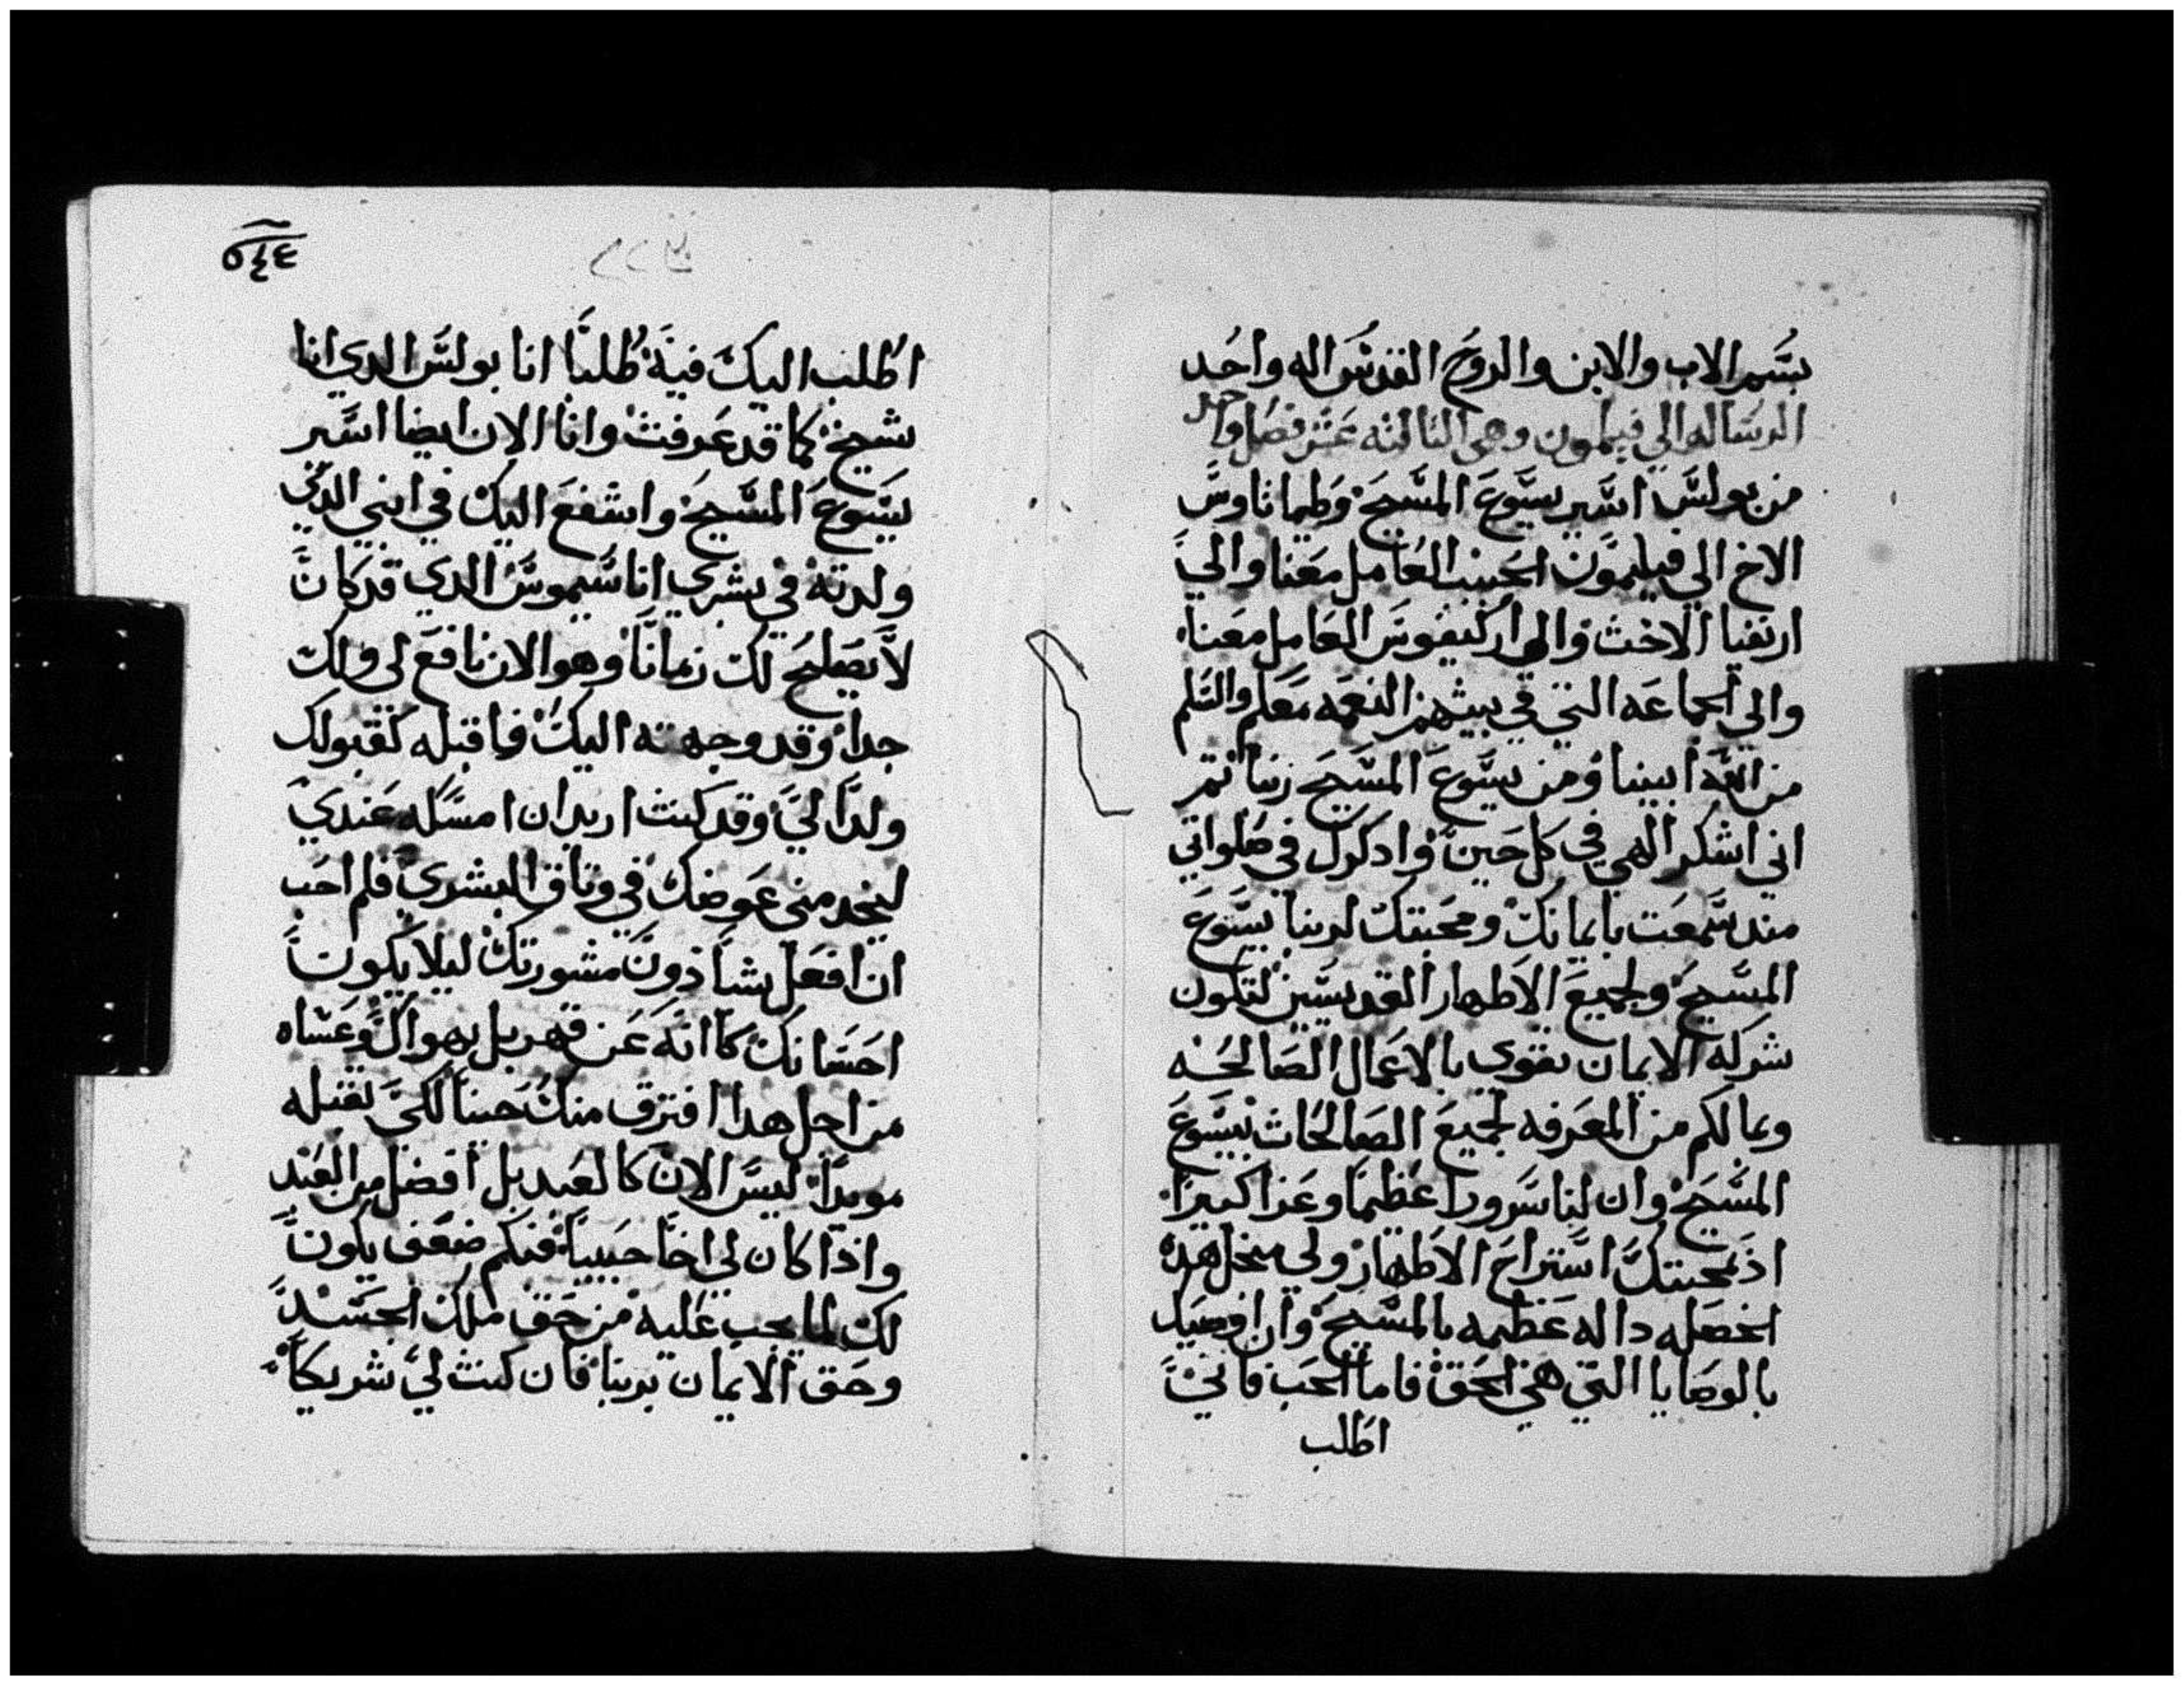 بسم الاب والابن والروح القدس اله واحد
الرساله الي فيلمون وهي التالته عشر فصل واحد
من بولس اسير يسوع المسيح وطيماتاوس
الاخ الي فيليمون الحبيب العامل معنا والي
ارتفيا الاخت والي اركيفوس العامل معنا
والي الجماعه التي في بيتهم النعمه معكم والسلم
من الله ابينا ومن يسوع المسيح ربنا تم
اني اشكر الهي في كل حين وادكرك في صلواتي
مند سمعت بايمانك ومحبتك لربنا يسوع
المسيح ولجميع الاطهار القديسين لتكون
شركه الايمان تقوي بالاعمال الصالحه
وبمالكم من المعرفه لجميع الصالحات بيسوع
المسيح وان لنا سرورا عظيما وعزا كبيرا
اذ بمحبتك استراح الاطهار ولي منجل هده
الخصله داله عظيمه بالمسيح وان اوصيك
بالوصايا التي هي الحق فاما الحب فاني
اطلب
٥٤٤
اطلب اليك فيه طلبا انا بولس الدي انا
شيخ كما قد عرفت وانا الان ايضا اسير
يسوع المسيح واشفع اليك في ابني الدي
ولدته في بشري اناسيموس الدي قد كان
لا يصلح لك زمانا وهو الان نافع لي ولك
جدا وقد وجهته اليك فاقبله كقبولك
ولدا لي وقد كنت اريد ان امسكه عندي
ليخدمني عوضك في وتاق البشري فلم احب
ان افعل شا دون مشورتك ليلا يكون
احسانك كاانه عن قهر بل بهواك وعساه
من اجل هدا افترق منك حينا لكي تقبله
موبدا ليس الان كالعبد بل افضل من العبد
واذا كان لي اخا حبيبا فكم ضعف يكون
لك لما يجب عليه من حق ملك الجسد
وحق الايمان بربنا فان كنت لي شريكا